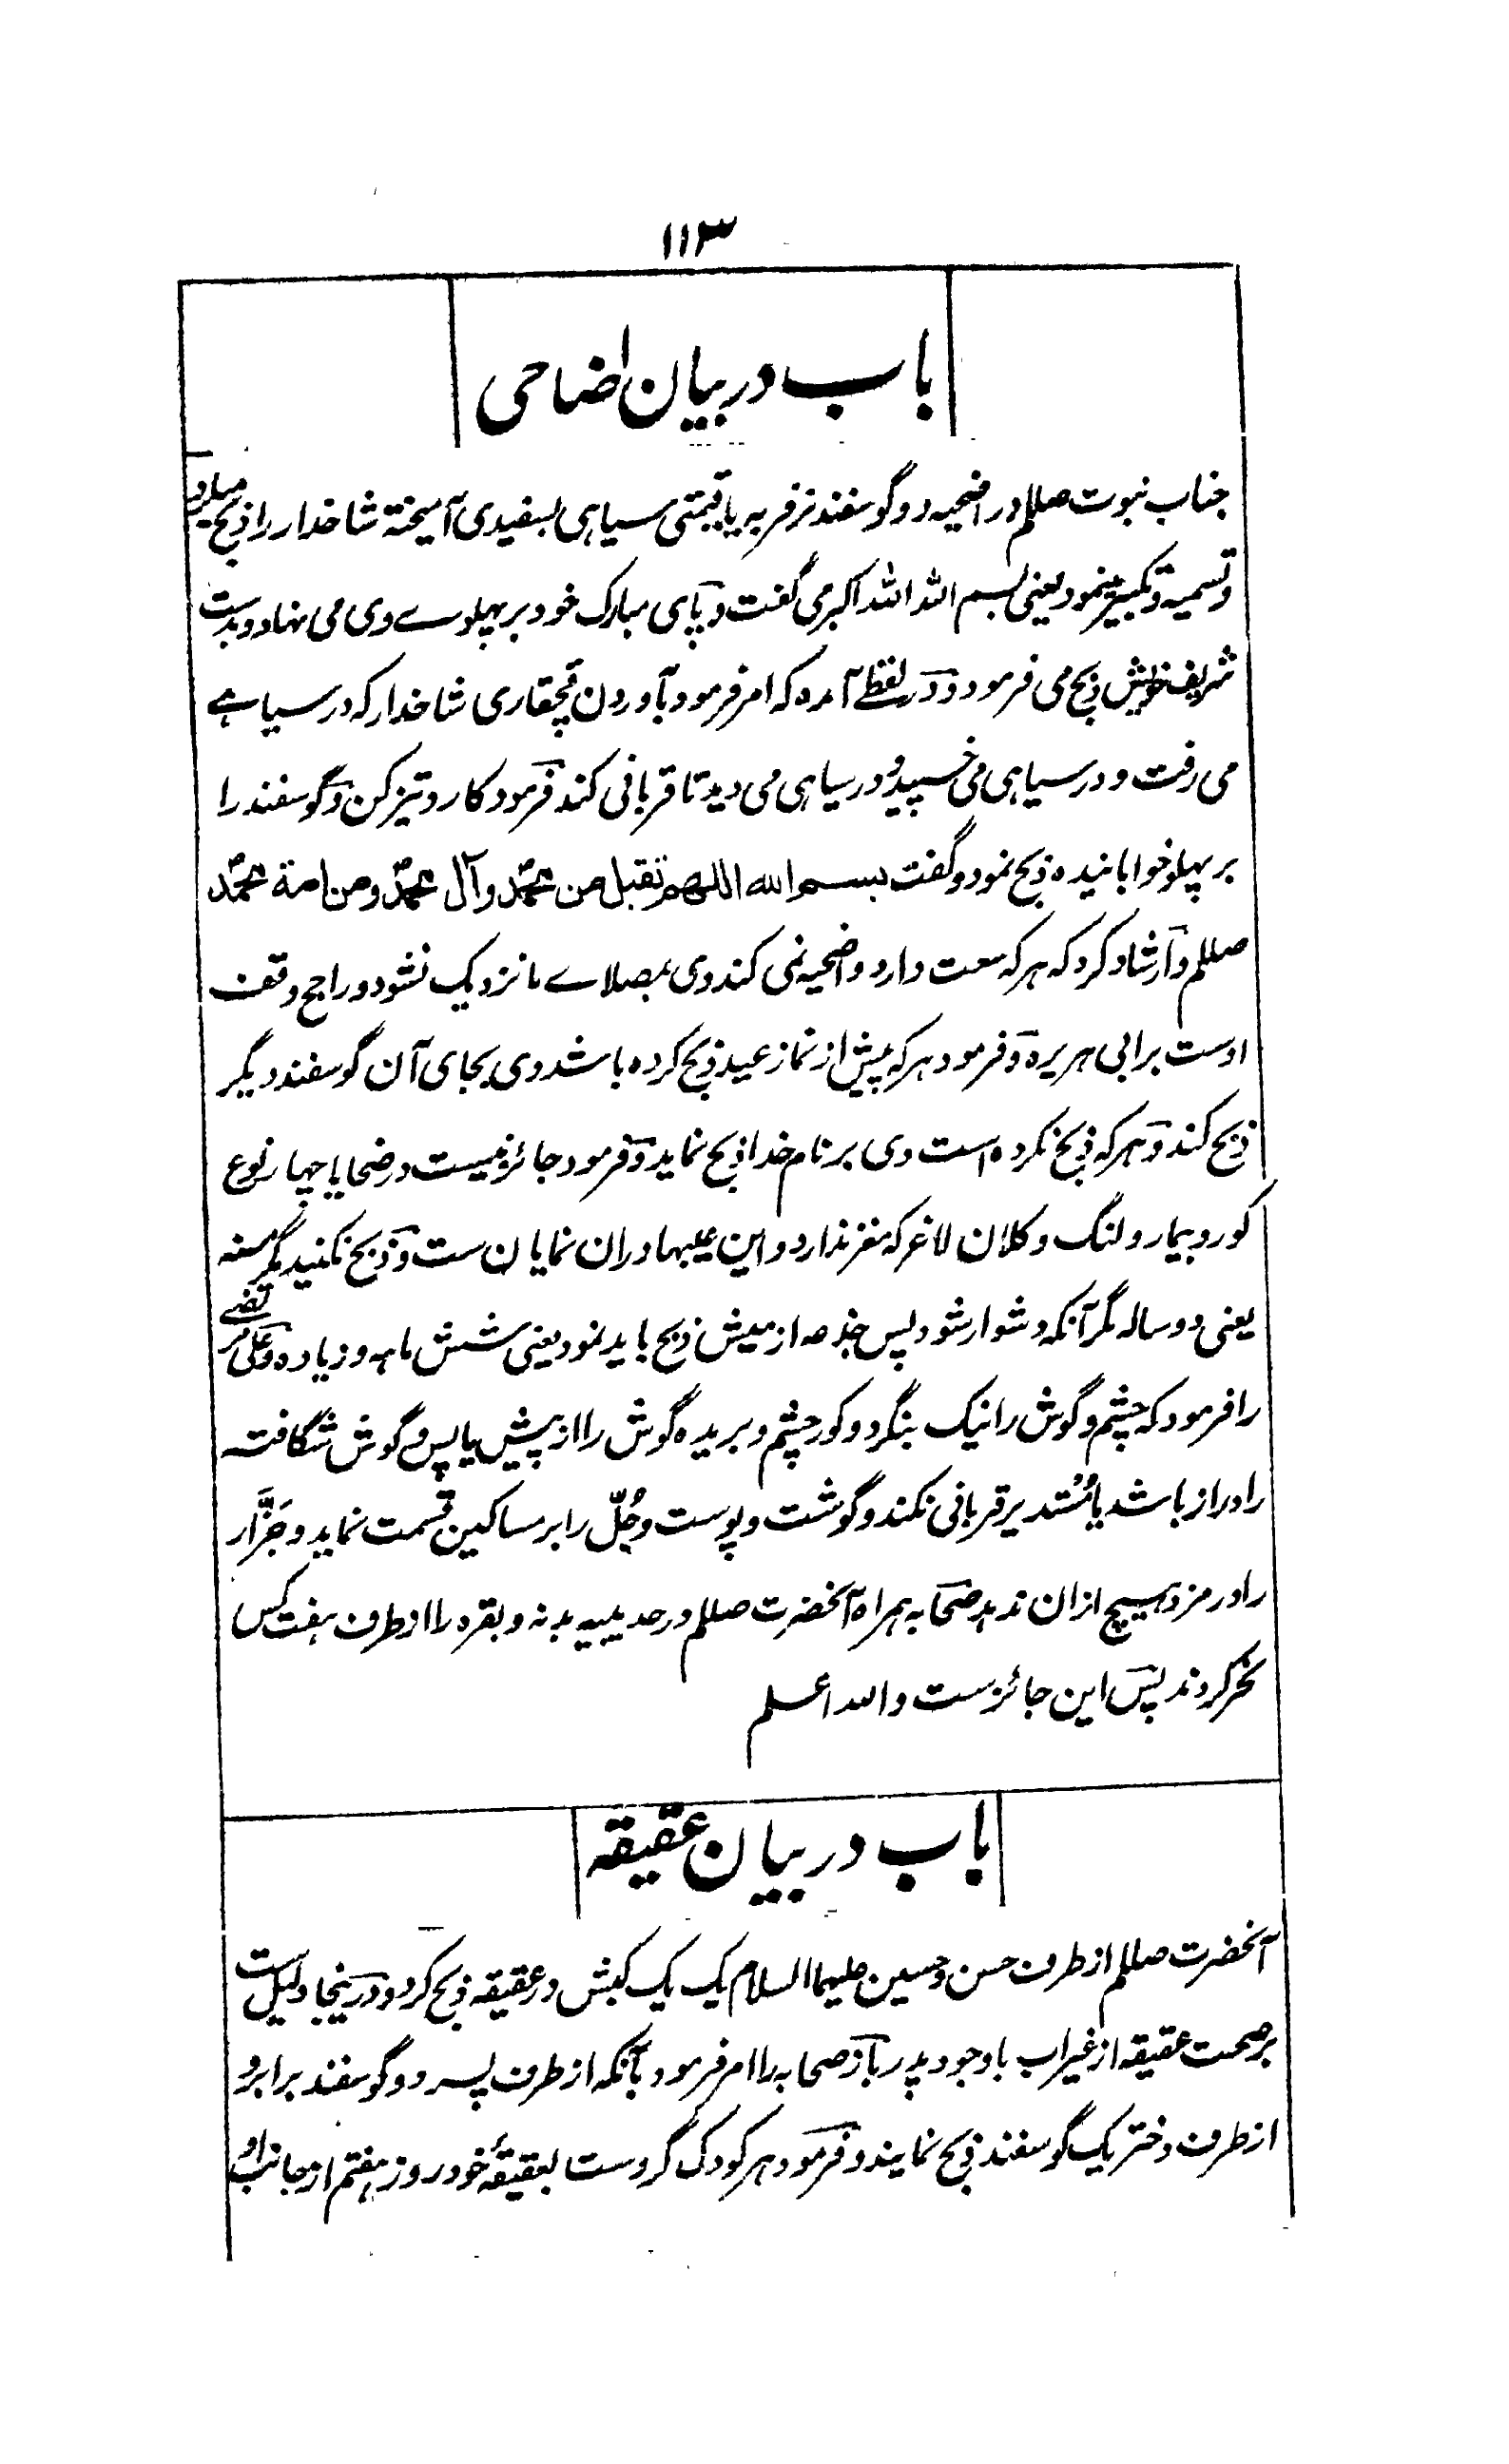 ۱۱۳
باب در بیان اضاحی
جناب نبوت صللم در اضحیه دو گوسفند نر فربه یا قیمتی سیاهی بسفیدی آمیخته شاخدار را ذبح
و تسمیه و تکبیر مینمود یعنی بسم الله الله اکبر می گفت و پای مبارک خود بر پهلوے وی می نهاد و بدست
شریف خویش ذبح می فرمود و در لفظے آمده که امر فرمود بآوردن قچقاری شاخدار که در سیاهے
می رفت و در سیاهی می خسپید و در سیاهی می دید تا قربانی کند فرمود کارد تیز کن و گوسفند را
بر پهلو خوابانیده ذبح نمود و گفت بسم الله اللهم تقبل من محمد وآل محمد ومن امة محمد
صللم و ارشاد کرد که هر که سعت دارد و اضحیه نمی کند وی بمصلاے ما نزدیک نشود و راجح وقف
اوست بر ابی هریره و فرمود هر که پیش از نماز عید ذبح کرده باشد وی بجای آن گوسفند دیگر
ذبح کند و هر که ذبح نکرده است وی بر نام خدا ذبح نماید و فرمود جائز نیست در ضحایا چهار نوع
کور و بیمار و لنگ و کلان لاغر که مغز ندارد و این عیبها دران نمایان ست و ذبح نکنید مگر مسنه
یعنی دو ساله مگر آنکه دشوار شود پس جذعه از میش ذبح باید نمود یعنی شش ماهه و زیاده و علی مرتضے
را فرمود که چشم و گوش را نیک بنگرد و کور چشم و بریده گوش را از پیش یا پس و گوش شگافته
را دراز باشد یا مُستدیر قربانی نکند و گوشت و پوست و جُلّ را بر مساکین قسمت نماید و جَزَّار
را در مزد هیچ ازان ندهد صحابه همراه آنحضرت صللم در حدیبیه بدنه و بقره را از طرف هفت کس
نحر کردند پس این جائز ست والله اعلم
باب در بیان عقیقه
آنحضرت صللم از طرف حسن و حسین علیهما السلام یک یک کبش در عقیقه ذبح کرد و درینجا دلیل ست
بر صحت عقیقه از غیر اب با وجود پدر باز صحابه را امر فرمود بآنکه از طرف پسر دو گوسفند برابر و
از طرف دختر یک گوسفند ذبح نمایند و فرمود هر کودک گروست بعقیقهٔ خود روز هفتم از جانب او